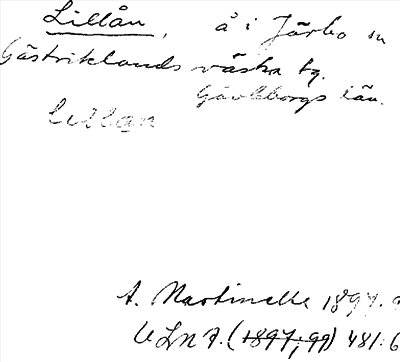 Lillån, å i Järbo sn
Gästriklands västra tg.
Gävleborgs län.
Lillan
A. Martinelle 1897.
ULMA. (1897;99) 481:6